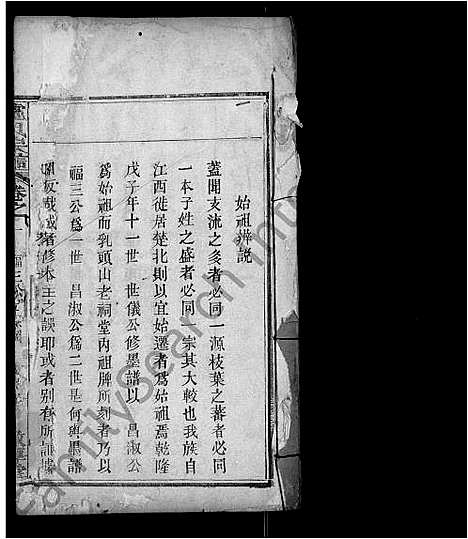 始祖辯說
蓋聞支流之多者必同一源枝葉之蕃者必同
一本子姓之盛者必同一宗其大較也我族自
江西徙居楚北則以宜始遷者為始祖焉乾隆
戊子年十一世 世儀公修墨譜以 昌淑公
為始祖而乳頭山老祠堂內祖牌所刻者乃以
福三公為一世 昌淑公為二世是何與墨譜
或者修本主之誤耶或者別有所
卷之一
FamilySearch Int